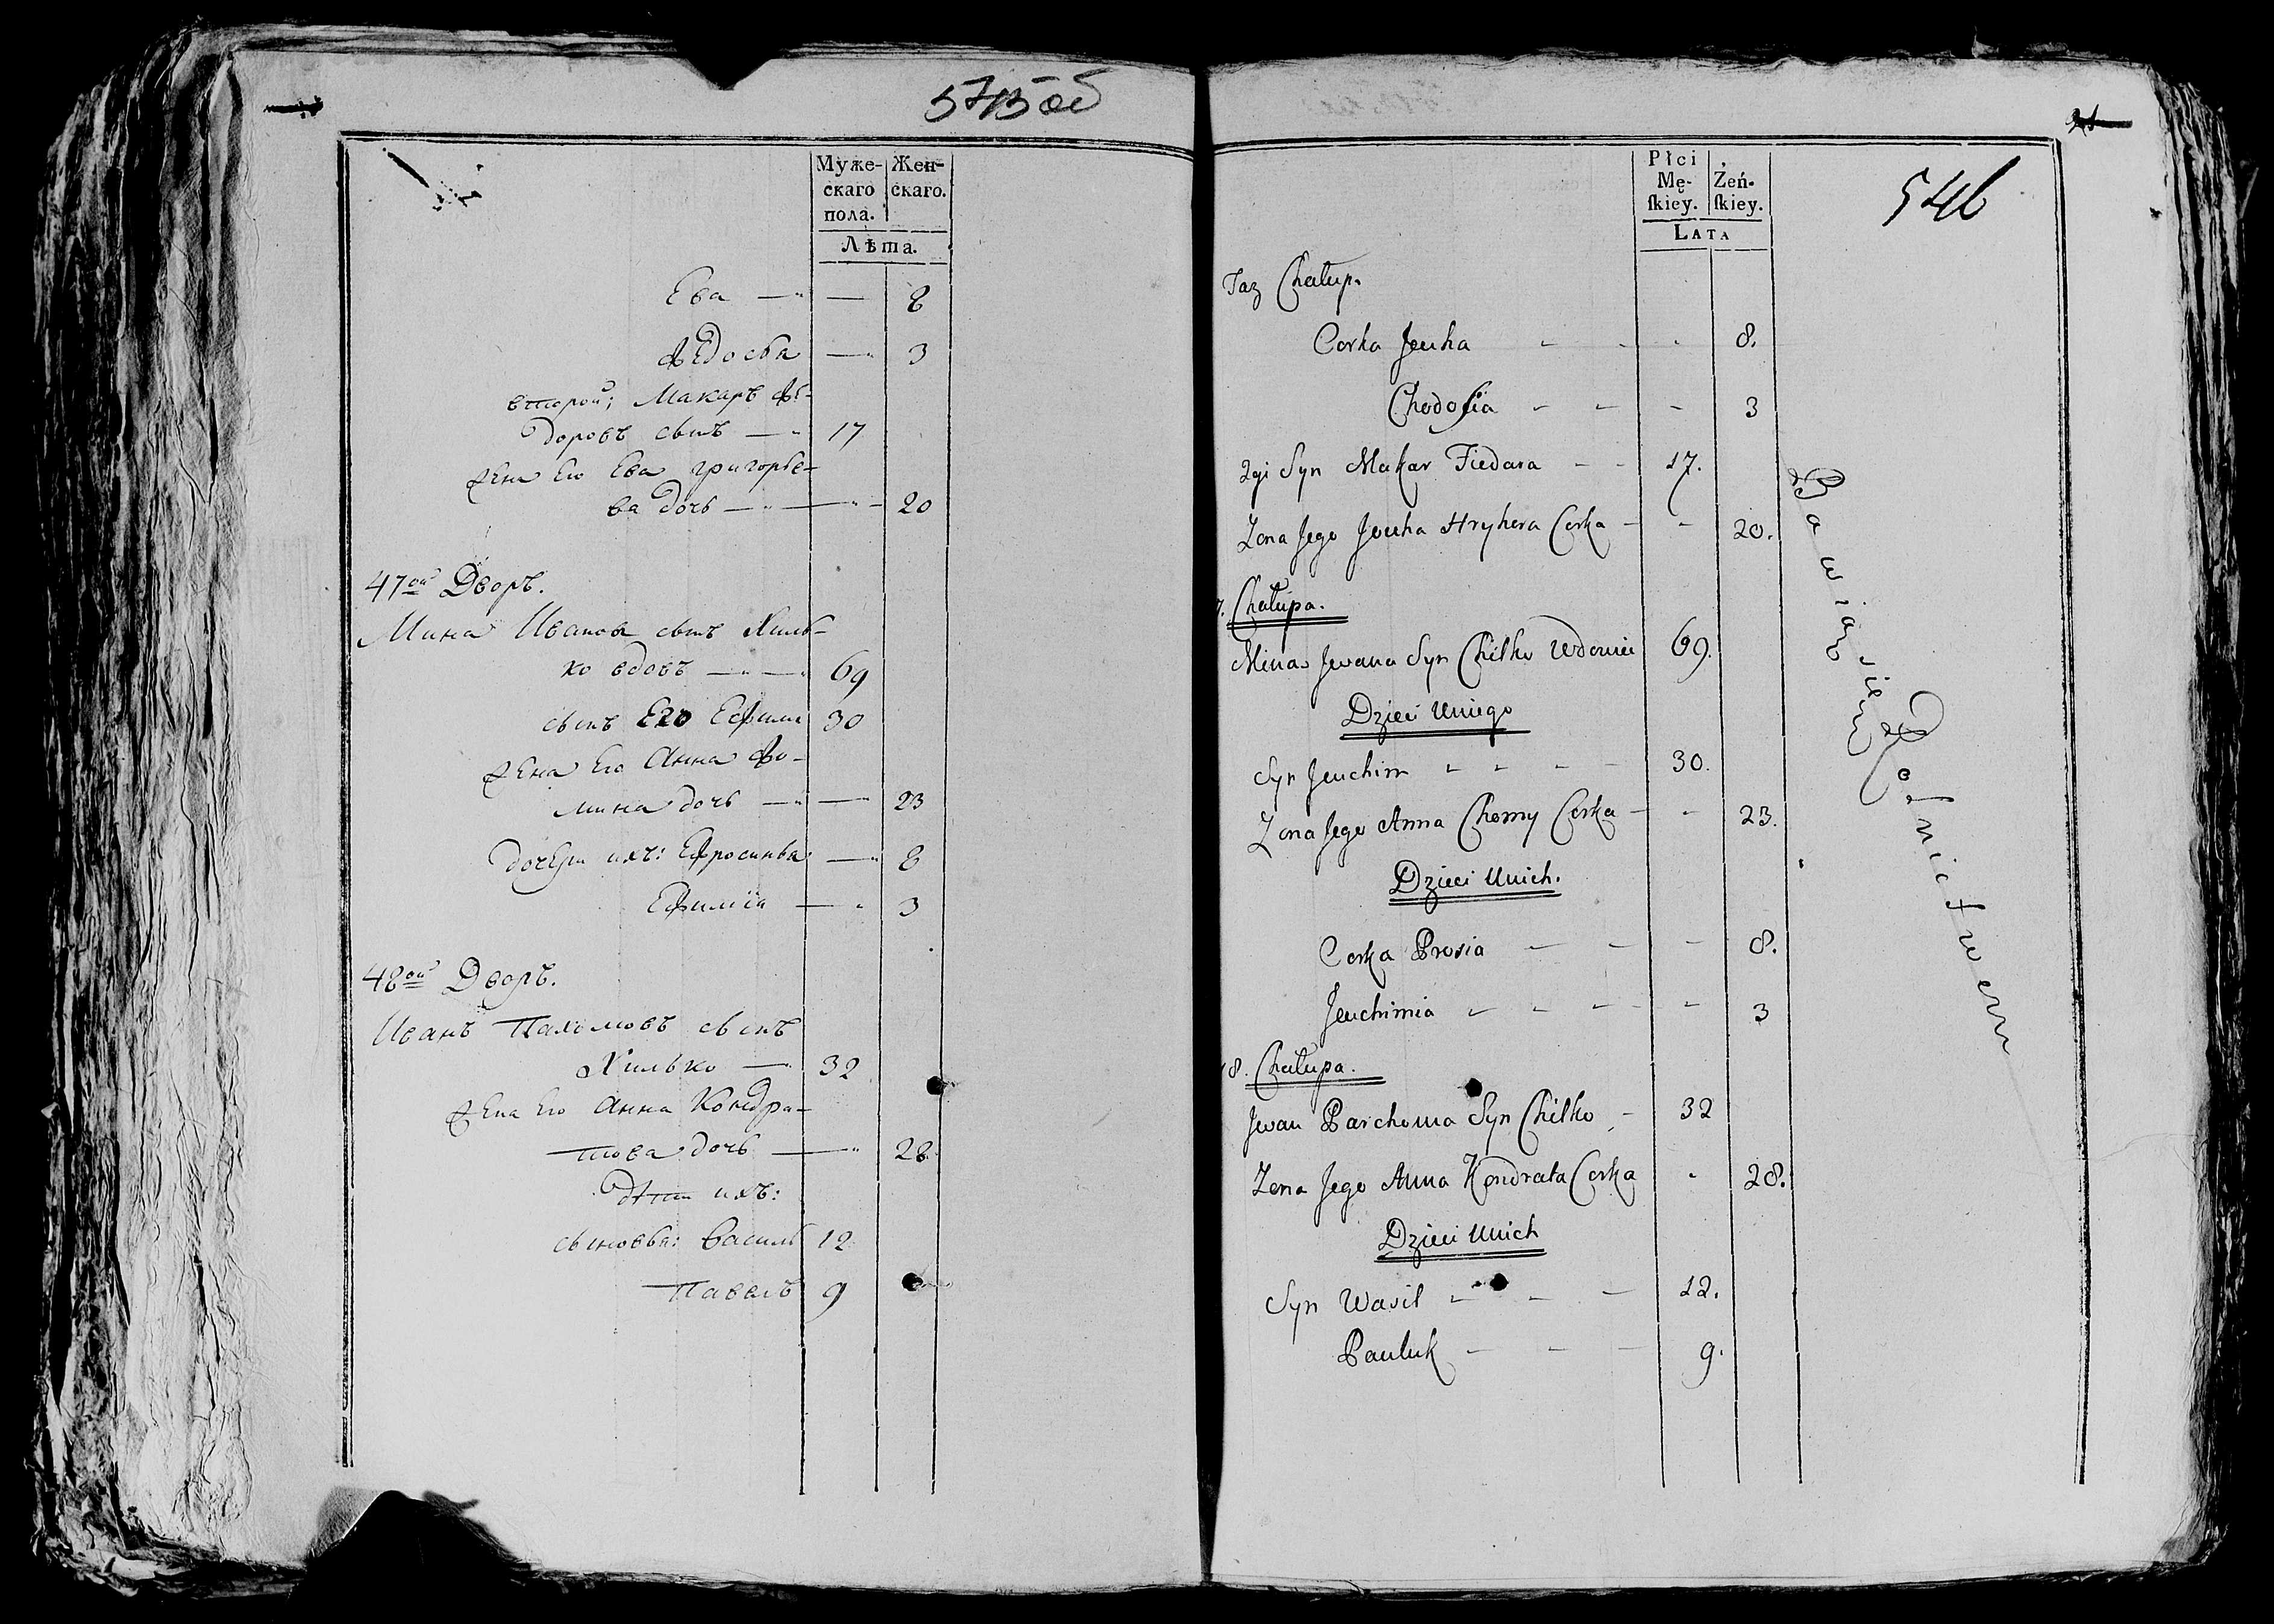 545 об
Муже-
скаго
пола.
Жен-
скаго.
Лѣта.
Ева — — 8
Ѳедосья — 3
второй; Макаръ Ѳе-
доровъ сынъ — 17
Жена Его Ева Григорье-
ва дочь — — 20
47ой Дворъ.
Мина Ивановъ сынъ Хиль-
ко вдовъ — — 69
сынъ Его Ефимъ 30
Жена Его Анна Фо-
мина дочь — — 23
дочери ихъ: Ефросинья — 8
Ефимiя — 3
48ой Дворъ.
Иванъ Пахомовъ сынъ
Хилько — 32
Жена Его Анна Кондра-
това дочь — 28
Дѣти ихъ:
сыновья: Василь 12
Павелъ 9
546
Płci
Mę-
ſkiey.
Żeń-
ſkiey.
LATA
Taż Chałup.
Corka Jeuha - - - 8.
Chodosia - - - 3
2gi Syn Makar Fiedara - - 17.
Zona Jego Jeuha Hryhora Corka - - 20.
7. Chałupa.
Minas Jwana Syn Chilko Wdowiec 69.
Dzieci Uniego
Syn Jeuchim - - - - 30.
Zona Jego Anna Chomy Corka - - 23.
Dzieci Unich.
Corka Prosia - - - 8.
Jeuchimia - - - - - 3
8. Chałupa.
Jwan Parchoma Syn Chilko - 32
Zona Jego Anna Kondrata Corka - 28.
Dzieci Unich
Syn Wasil - - - 12.
Pauluk - - - 9.
Bawiącsię Rolnictwem